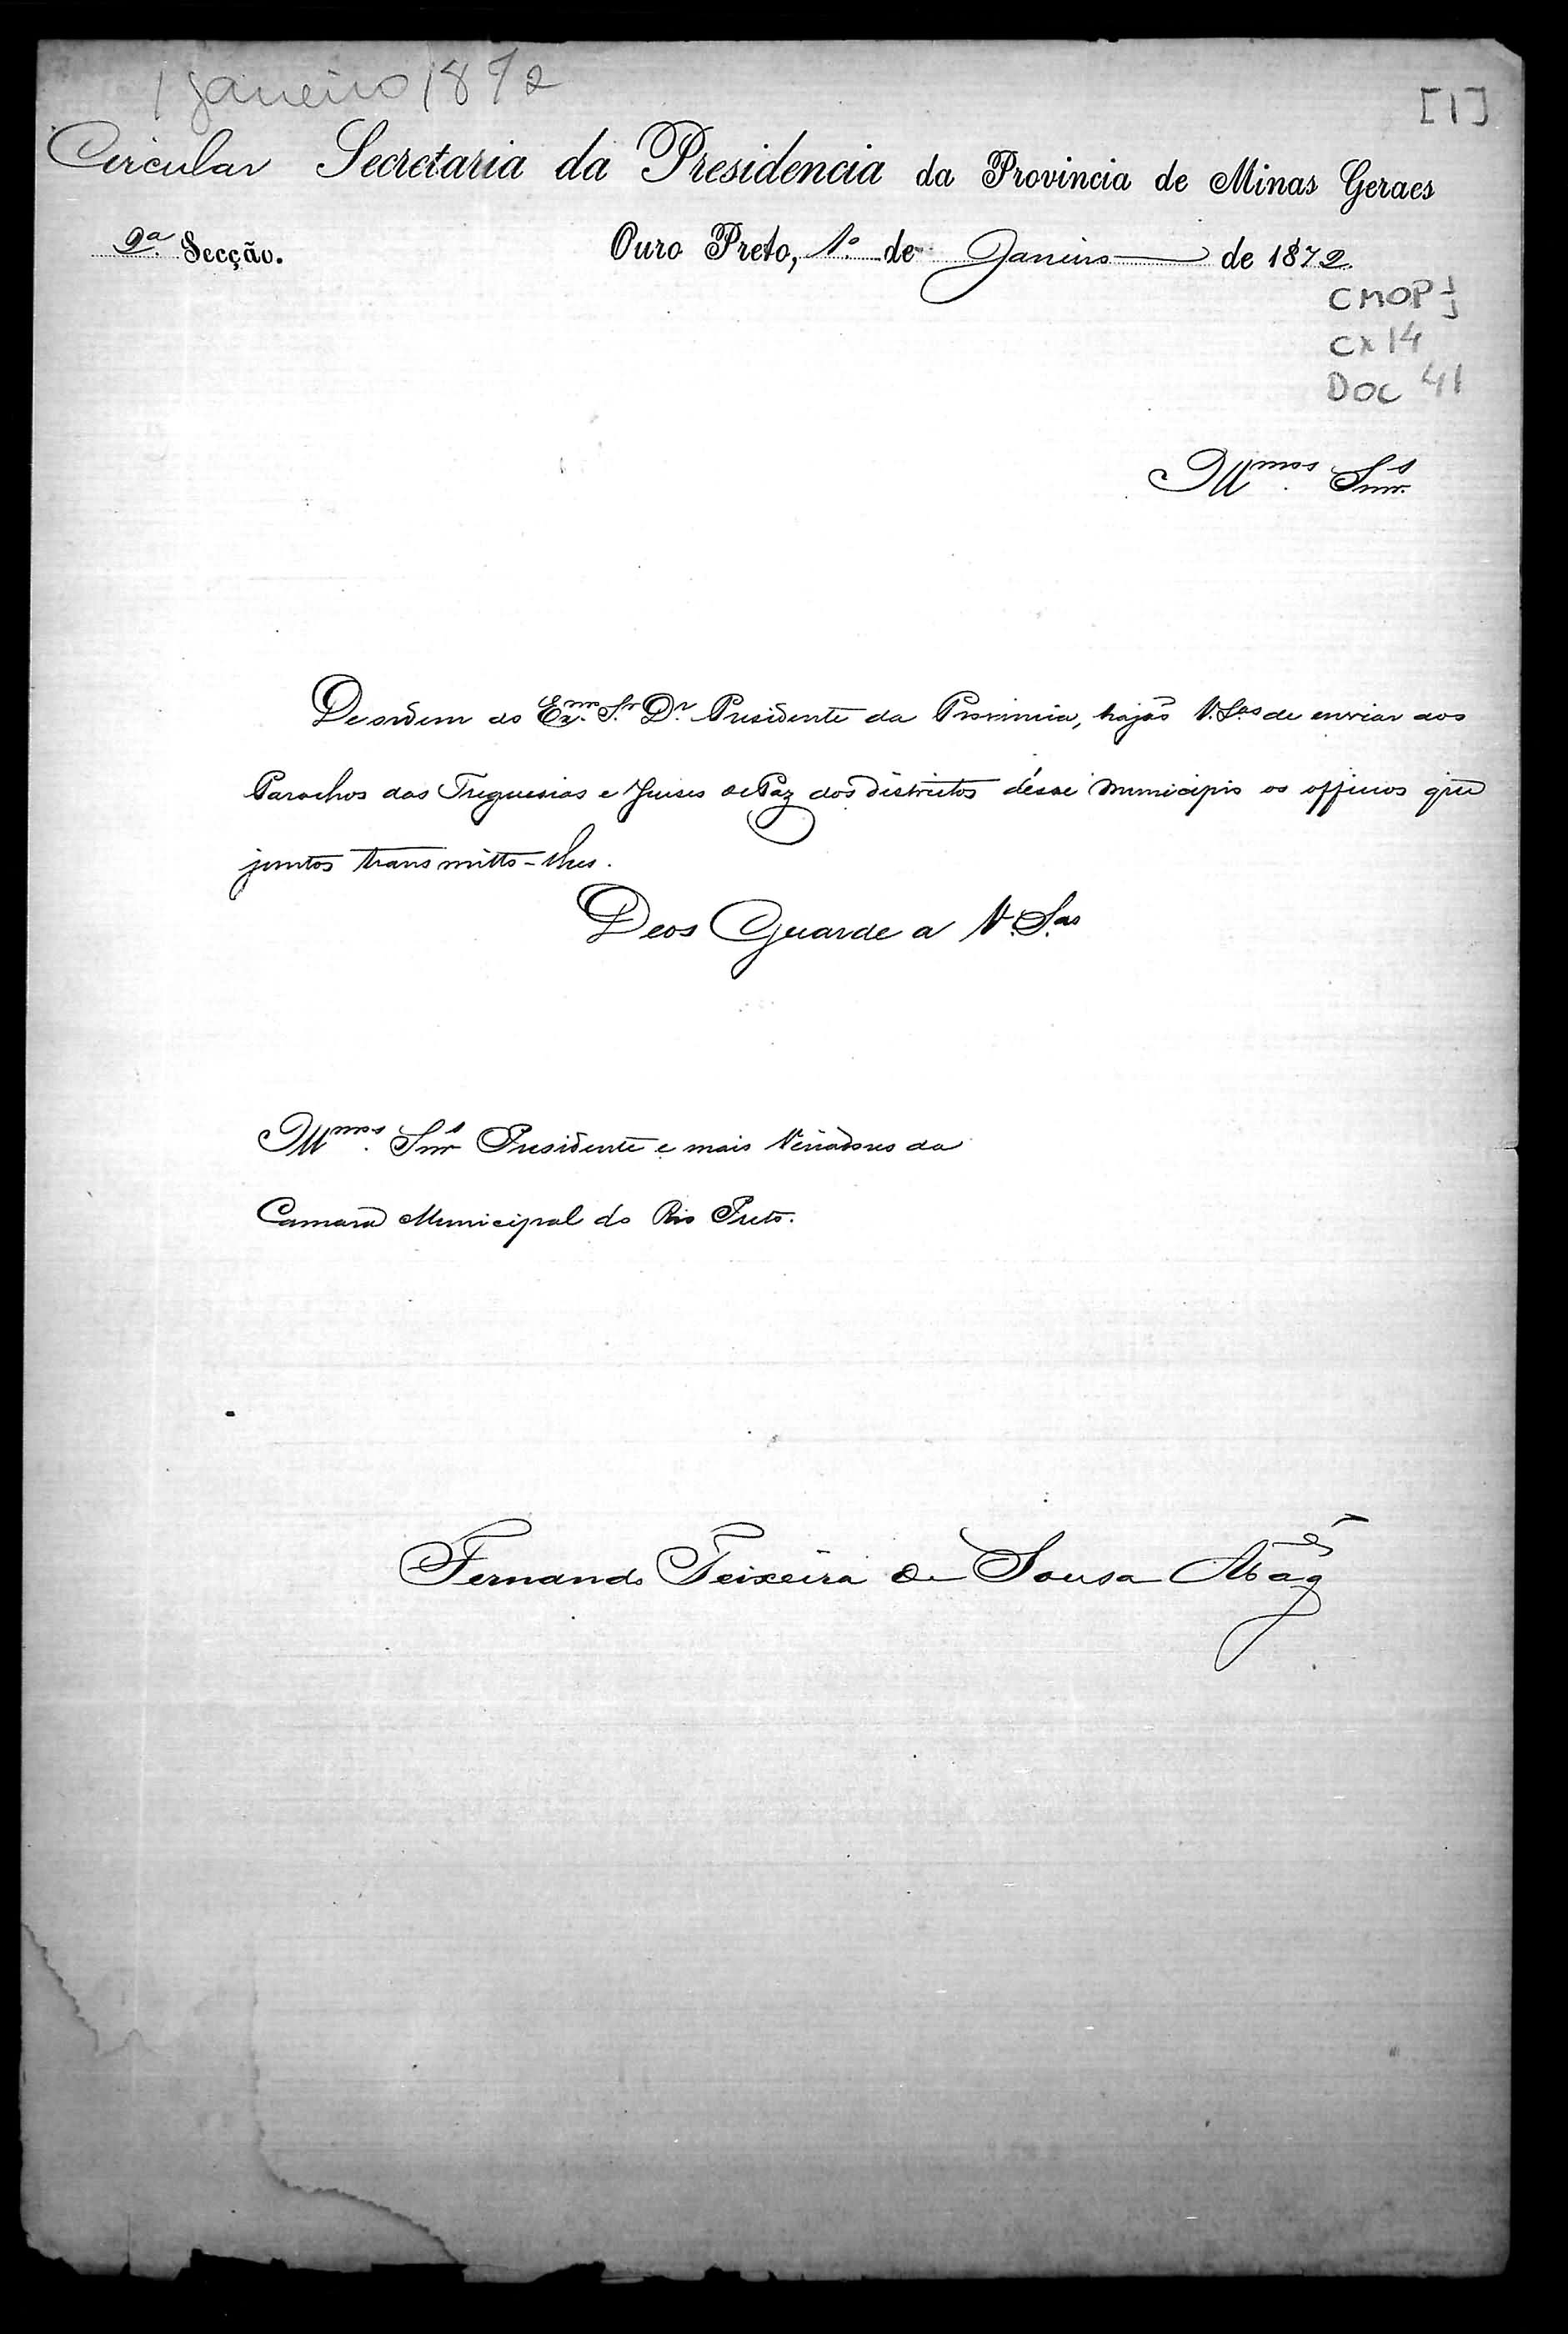 1 janeiro 1872
[1]
Circular Secretaria da Presidencia da Provincia de Minas Geraes
2ª Secção. Ouro Preto, 1º de Janeiro de 1872
CMOP
Cx 14
DOC 41
Illmos. Snrs.
De ordem do Exmo. Sr. Dr. Presidente da Provincia, hajão V. Sas. de enviar aos
Parochos das Freguesias e Juises de Paz dos districtos d'esse Municipio os officios que
juntos transmitto-lhes.
Deos Guarde a V. Sas
Illmos. Snrs Presidente e mais Vereadores da
Camara Municipal do Rio Preto.
Fernando Teixeira de Sousa Magês